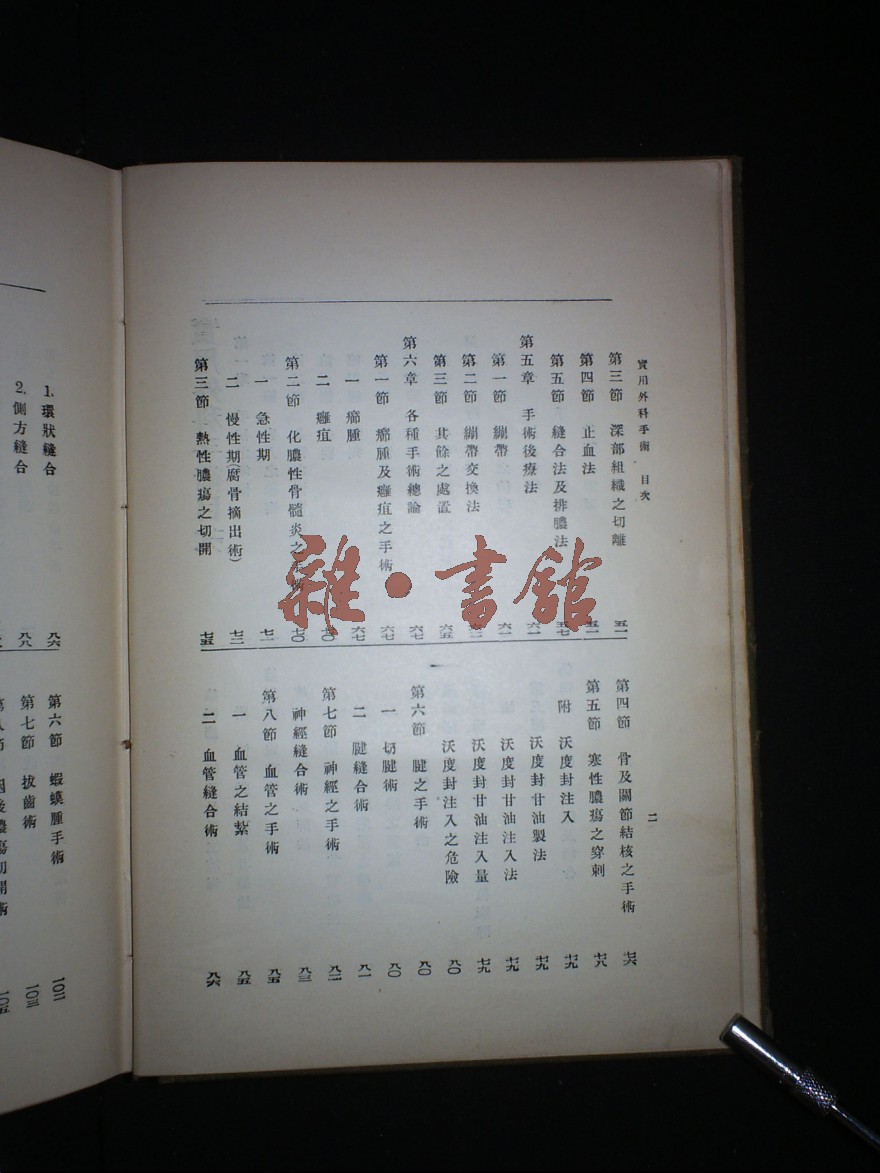 實用外科手術 目次
二
第三節 深部組織之切離 五一
第四節 止血法 五一
第五節 縫合法及排膿法 五七
第五章 手術後療法 六一
第一節 綳帶 六一
第二節 綳帶交換法
第三節 其餘之處置 六五
第六章 各種手術總論 六六
第一節 癤腫及癰疽之手術 六七
一 癤腫 六七
二 癰疽 七〇
第二節 化膿性骨髓炎之手術 七〇
一 急性期 七二
二 慢性期(腐骨摘出術) 七三
第三節 熱性膿瘍之切開 七五
第四節 骨及關節結核之手術 七六
第五節 寒性膿瘍之穿刺 七八
附 沃度封注入 七九
沃度封甘油製法 七九
沃度封甘油注入法 七九
沃度封甘油注入量 七九
沃度封注入之危險 八〇
第六節 腱之手術 八〇
一 切腱術 八〇
二 腱縫合術 八一
第七節 神經之手術 八二
神經縫合術 八三
第八節 血管之手術 八五
一 血管之結紮 八五
二 血管縫合術 八六
1. 環狀縫合 八六
2. 側方縫合 八八
第六節 蝦蟆腫手術 一〇二
第七節 拔齒術 一〇三
一〇五
雜·書館